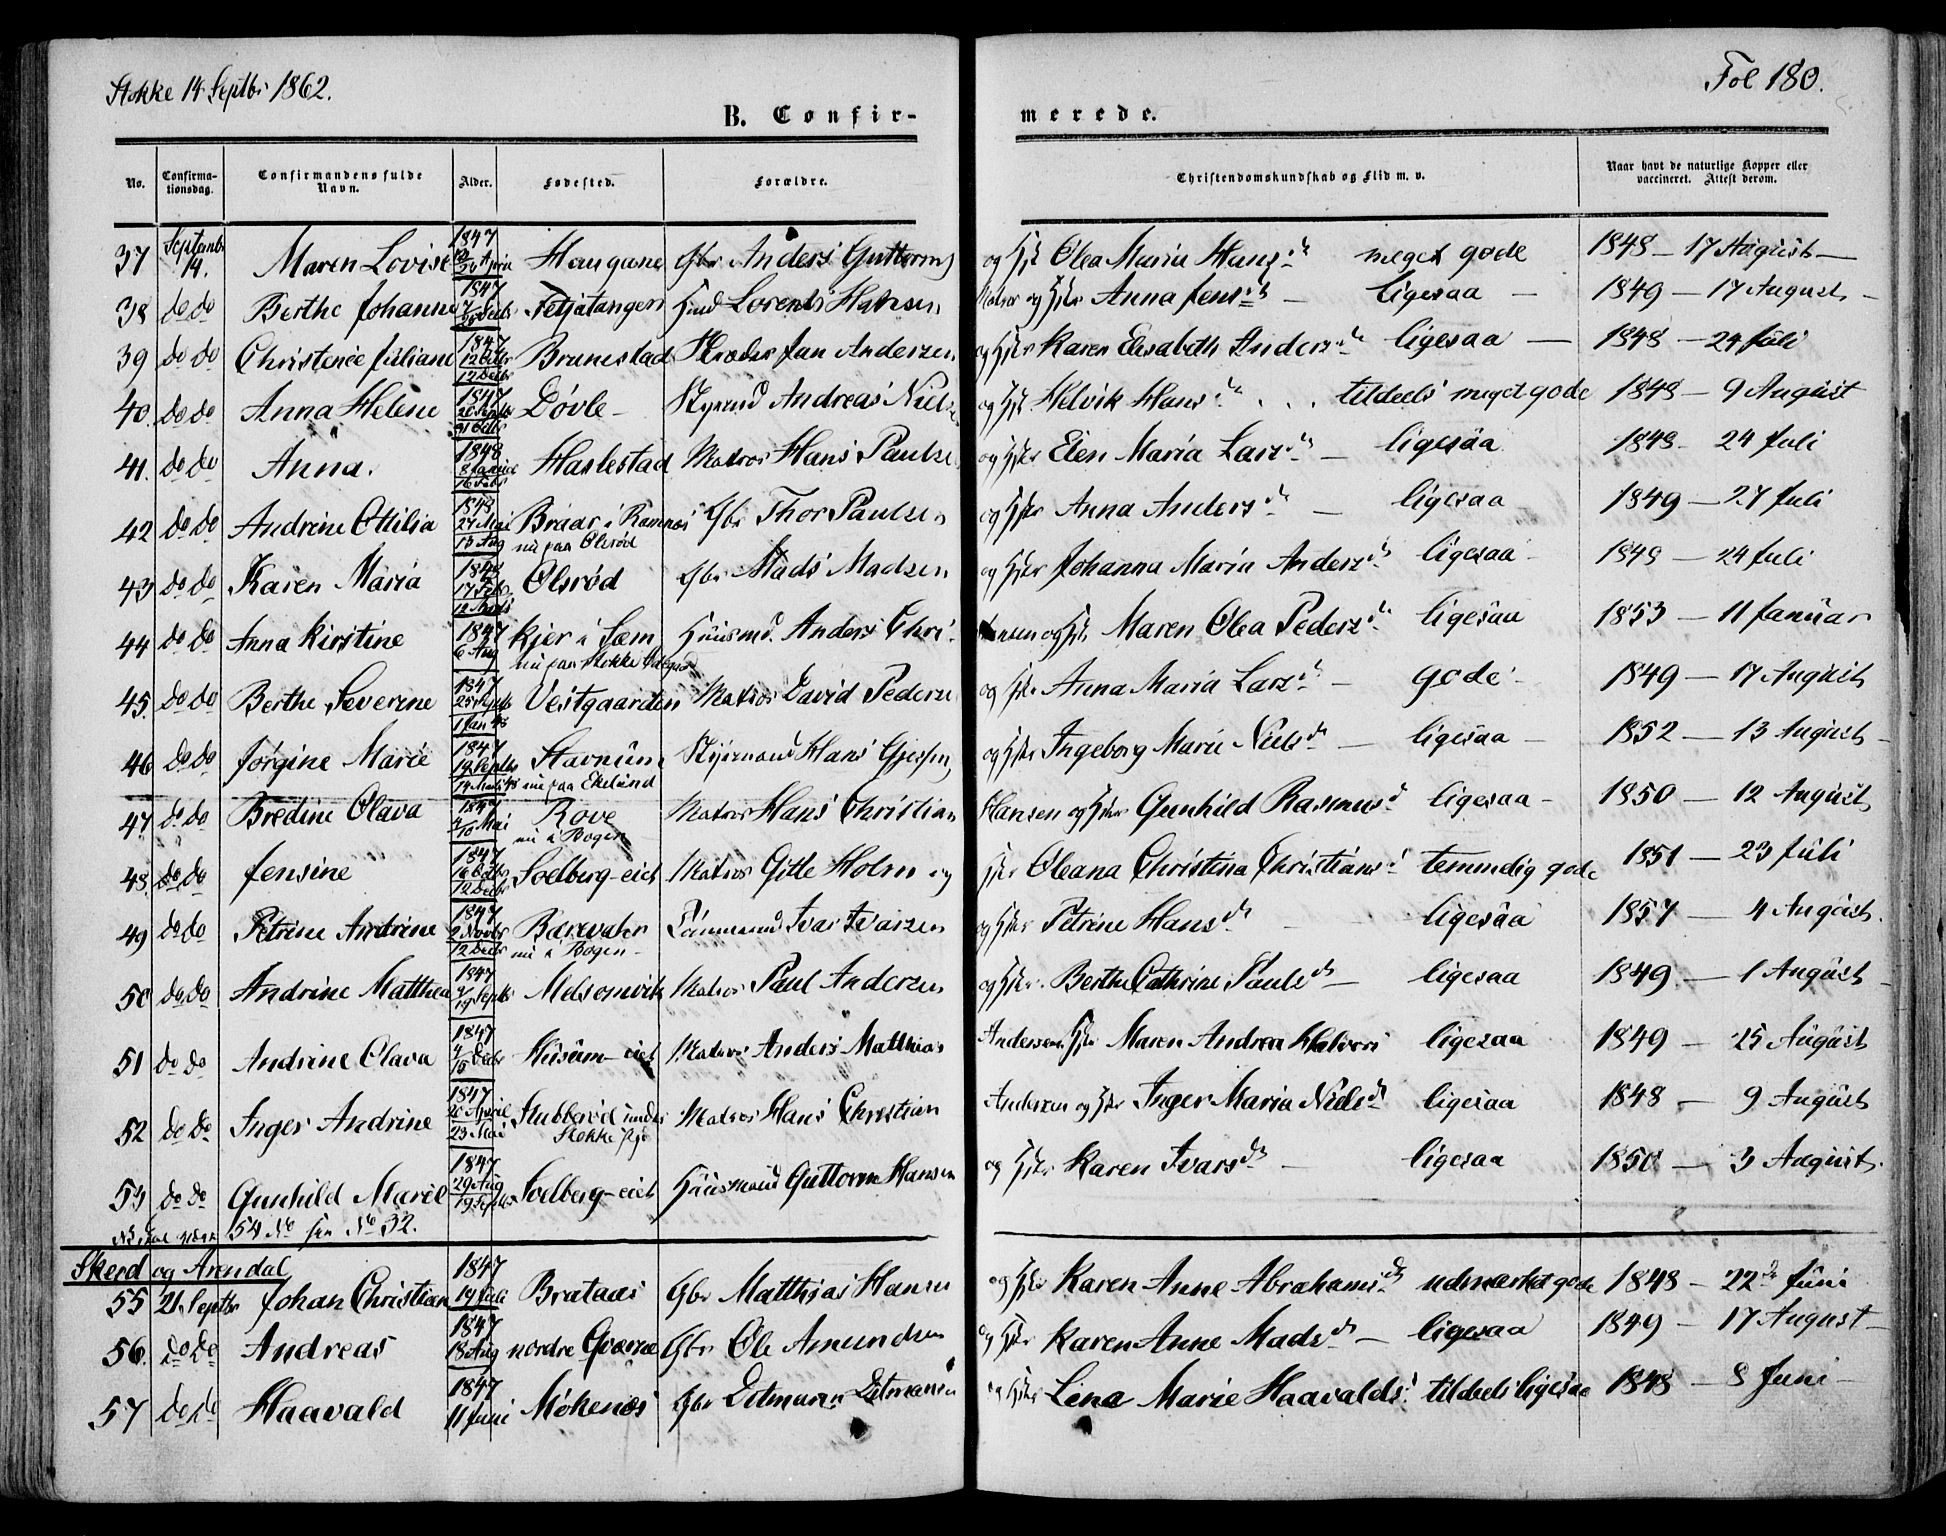 Stokke 14 Septbr 1862.
Fol 180.
B. Confir-
merede.
No.
Confirma-
tionsdag.
Confirmandens fulde
Navn.
Alder.
Fødested.
Forældre.
Christendomskundskab og Flid m. v.
Naar havt de naturlige Kopper eller
vaccineret. Attest derom.
37 Septemb 14. Maren Lovise 1847 April Haugane Gbr Anders Guttorms og Hst Olea Maria Hans d meget gode 1848 — 17 August —
38 do do Berthe Johanne 1847 Fetjatangen Lorents Hansen og Hstr Anna Jens d — ligesaa — 1849 — 17 August —
39 do do Christence Juliane 1847 12 Decbr Brunestad Jan Andersen og Hstr Karen Elisabeth Anders d ligesaa — 1848 — 24 Juli
40. do do Anna Helene 1847 26 Septbr Døvle — Andreas Niels og Hst Helvik Hans d tildeels meget gode 1848 — 9 August
41. do do Anna. 1848 8 Januar 16 Febr Haslestad Matros Hans Paulse og Hstr Elen Maria Lars d — ligesaa 1848 — 24 Juli
42 do do Andrine Ottilia 27 Mai 13 Aug Braar i Ramnæs Gbr Thor Paulsen og Hstr Anna Anders d ligesaa 1849 — 27 Juli
nu paa Olsrød
43 do do Karen Maria 1848 17 Febr Olsrød Gbr Mads Madsen og Hstr Johanna Maria Anders d ligesaa 1849 — 24 Juli
44 do do Anna Kirstine 1847 6 Aug Kjer i Sæm Huusmd. Anders Chri- stensen og Hst Maren Olea Peders d ligesaa 1853 — 11 Januar
nu paa Stokke
45. do do Berthe Severine 1847 1 Jan 48 Vestgaarden Matros David Peders og Hstr Anna Maria Lars d — gode 1849 — 17 August
46 do do Jørgine Marie 1847 19 Septbr Stavnum Styrmand Hans og Hstr Ingeborg Marie Niels d — ligesaa — 1852 — 13 August —
nu paa Ekelund
47. do do Bredine Olava 1847 Mai Rove Matros Hans Christian Hansen og Hstr Gunhild Rasmus d ligesaa — 1850 — 12 August
nu i Bogen
48. do do Jensine 1847 12 Decbr Solberg-eiet Matros Gitle Holm og Hstr Oleana Christina Christians d temmelig gode 1851 — 23 Juli
49 do do Petrine Andrine 1847 2 Novbr 12 Decbr Barevater Ivar Ivarsen og Hstr Petrine Hans d — ligesaa 1857 — 4 August.
nu i Bogen —
50 do do Andrine Matthea 1847 Septbr Melsomvik Matros Paul Andersen og Hstr. Berthe Cathrine Pauls d — ligesaa 1849 — 1 August —
51 do do Andrine Olava 1847 Decbr Husum-eiet Matros Anders Matthias Andersen Hstr Maren Andrea Halvors ligesaa 1849 — 25 August
52 do do Inger Andrine 1847 20 April 23 Mai Stubberød under Matros Hans Christian Andersen og Hstr Inger Maria Niels d ligesaa 1848 — 9 August
Stokke
53 do do Gunhild Marie 1847 29 Aug 19 Septbr Solberg-eiet Huusmand Guttorm Hansen og Hstr Karen Ivars d — ligesaa 1850 — 3 August.
54 No No 32.
Skeed og Arendal
55 21 Septbr Johan Christian 1847 19 Juli Brataas Gbr Matthias Hansen og Hstr Karen Anne Abrahams d udmærket gode 1848 — 22 Juni
56. do do Andreas 1847 18 Aug nordre Gverne Gbr Ole Amundsen og Hstr Karen Anne Mads d — ligesaa 1849 — 17 August —
57 do do Haavald 1847 11 Juni Møkenæs Gbr Ditmann Ditmansen og Hstr Lina Marie Haavalds d tildeels ligesaa 1848 — 8 Juni —